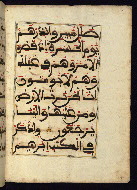 ضلل مبين وأنذرهم
يوم الحسرة إذ قضي
الأمر وهم في غفلة
وهم لا يؤمنون
إنا نحن نرث الأرض
ومن عليها وإلينا
يرجعون واذكر
في الكتب إبرهيم